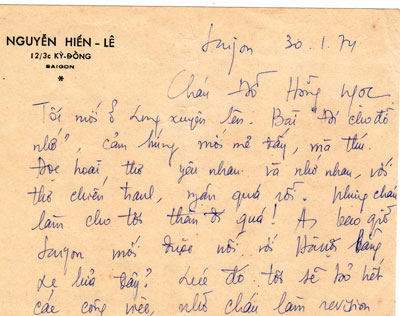 NGUYỄN HIẾN - LÊ
12/3c KỲ-ĐỒNG
SAIGON
*
Saigon 30.1.74
Cháu Đỗ Hồng Ngọc
Tôi mới ở Long xuyên lên. Bài "Đi cho đỡ
nhớ", cảm hứng mới mẻ đấy, mà thú.
Đọc hoài thơ yêu nhau và nhớ nhau, với
thơ chiến tranh, ngán quá rồi. Nhưng cháu
làm cho tôi thèm đi quá! A, bao giờ
Saigon mới được nối với Hànội bằng
xe lửa đây? Lúc đó tôi sẽ bỏ hết
các công việc, nhờ cháu làm revision